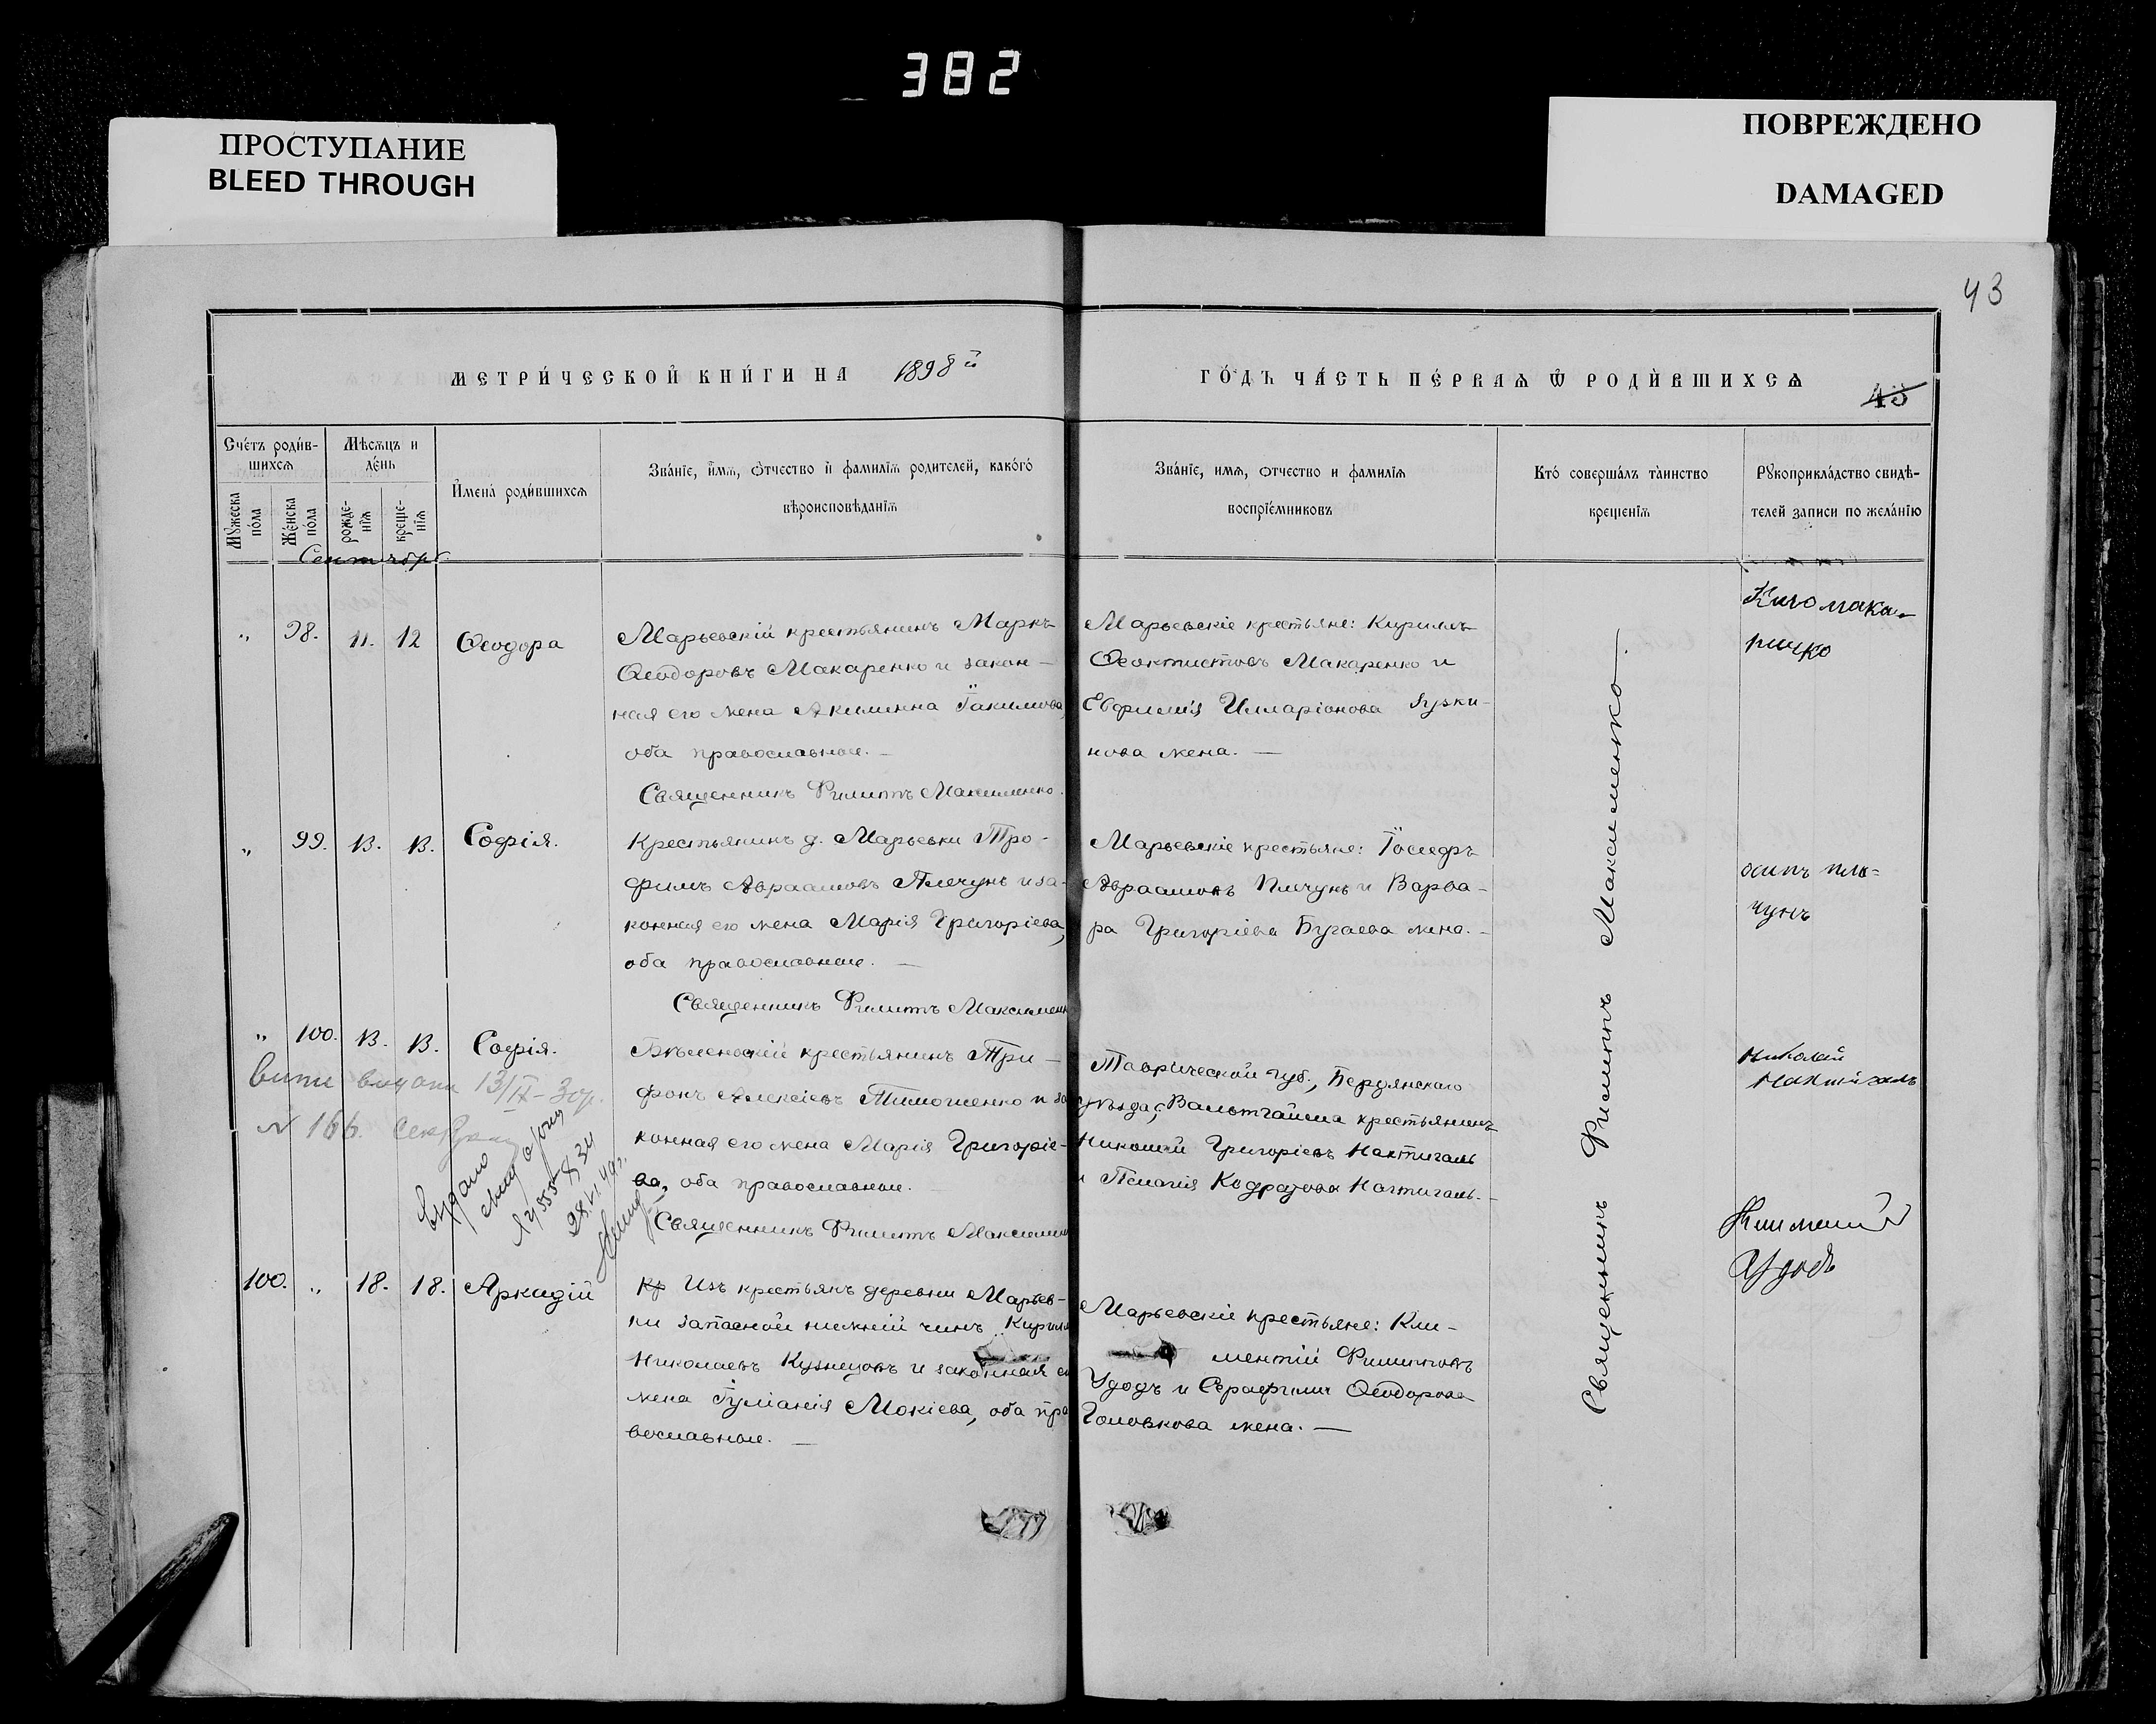 382
ПРОСТУПАНИЕ
BLEED THROUGH
ПОВРЕЖДЕНО
DAMAGED
43
МЕТРИ́ЧЕСКОЙ КНИ́ГИ НА 1898й
ГО́ДЪ ЧА́СТЬ ПЕ́РВАѦ Ѿ РОДИ́ВШИХСѦ
43
Сче́тъ роди́в-
шихсѧ
Мѣсѧцъ и
де́нь
Мꙋ́жеска
по́ла
Же́нска
по́ла
рожде-
нїѧ
креще-
нїѧ
И҆мена̀ роди́вшихсѧ
Зва́нїе, и҆́мѧ, ѻ҆́тчество и҆ фамилїѧ родителей, како́гѡ
вѣроисповѣданїѧ
Зва́нїе, имѧ, ѻтчество и фамилїѧ
воспрїе́мниковъ
Кто́ соверша́лъ та́инство
крещенїѧ
Рꙋкоприкла́дство свидѣ-
телей записи по жела́нїю
Сентябрь
„ 98. 11. 12 Ѳеодора
Марьевскій крестьянинъ Маркъ
Ѳеодоровъ Макаренко и закон-
ная его жена Акилинна Іакимова,
оба православные. —
Священникъ Филиппъ Максименко.
Марьевскіе крестьяне: Кириллъ
Ѳеоктистовъ Макаренко и
Евфимія Илларіонова Кузки-
нова жена. —
„ 99. 13. 13. Софія.
Крестьянинъ д. Марьевки Тро-
фимъ Авраамовъ Плечунъ и за-
конная его жена Марія Григоріева,
оба православные. —
Священникъ Филиппъ Максименк
Марьевскіе крестьяне: Іосифъ
Авраамовъ Плечунъ и Варва-
ра Григоріева Бугаева жена. -
осипъ пле=
чунъ
„ 100. 13. 13. Софія.
13/IX-30р.
№ 166.
Выдано
28.VI.49г.
крестьянинъ Три-
фонъ Алексіевъ Тимошенко и за
конная его жена Марія Григоріе-
ва, оба православные.
Священникъ Филиппъ Максимен
Таврической губ., Бердянскаго
уѣзда, с. Вальтгайма крестьянинъ
Николай Григоріевъ Нахтигаль
и Пелагія Кодратова Нахтигаль. -
Николай
Нахтигаль
100. „ 18. 18. Аркадій
Кр Изъ крестьянъ деревни Марьев-
ки запасной нижній чинъ Кирилл
Николаевъ Кузнецовъ и законная ег
жена Іуліанія Мокіева, оба пра
вославные. —
Марьевскіе крестьяне: Кли-
ментій Филипповъ
Удодъ и Серафима Ѳеодорова
Головкова жена. —
Климентій
Удодъ
Священникъ Филиппъ Максименко —